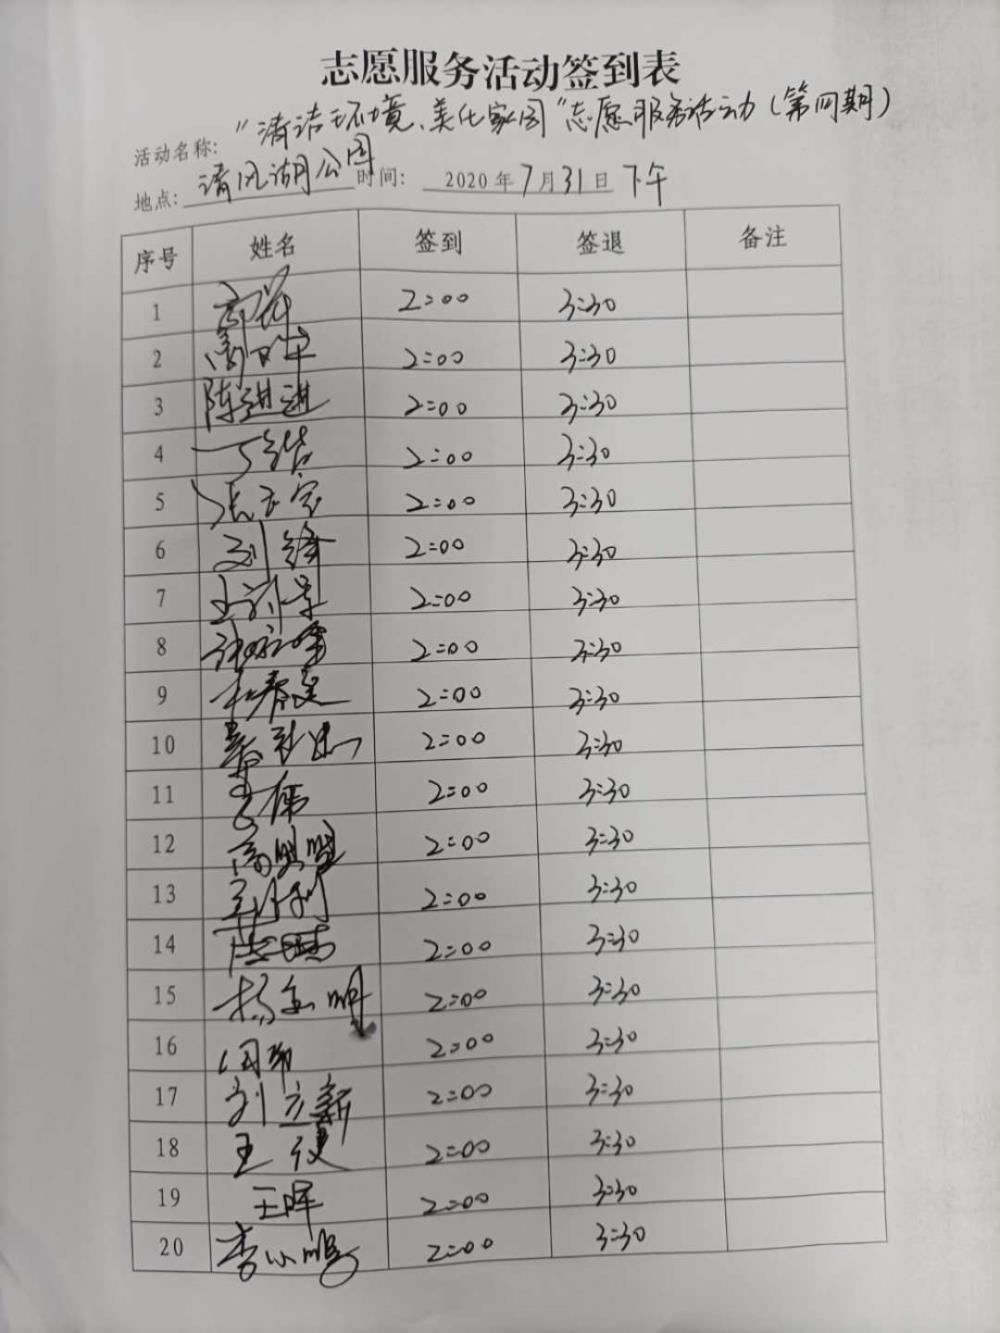 志愿服务活动签到表
活动名称: "清洁环境、美化家园"志愿服务活动(第四期)
地点: 清风湖公园 时间: 2020年7月31日下午
序号 姓名 签到 签退 备注
1 2:00 3:30
2 2:00 3:30
3 陈进进 2:00 3:30
4 2:00 3:30
5 2:00 3:30
6 刘锋 2:00 3:30
7 2:00 3:30
8 2:00 3:30
9 2:00 3:30
10 2:00 3:30
11 2:00 3:30
12 高盟盟 2:00 3:30
13 2:00 3:30
14 2:00 3:30
15 杨金明 2:00 3:30
16 2:00 3:30
17 刘立新 2:00 3:30
18 2:00 3:30
19 王晖 2:00 3:30
20 李小鹏 2:00 3:30